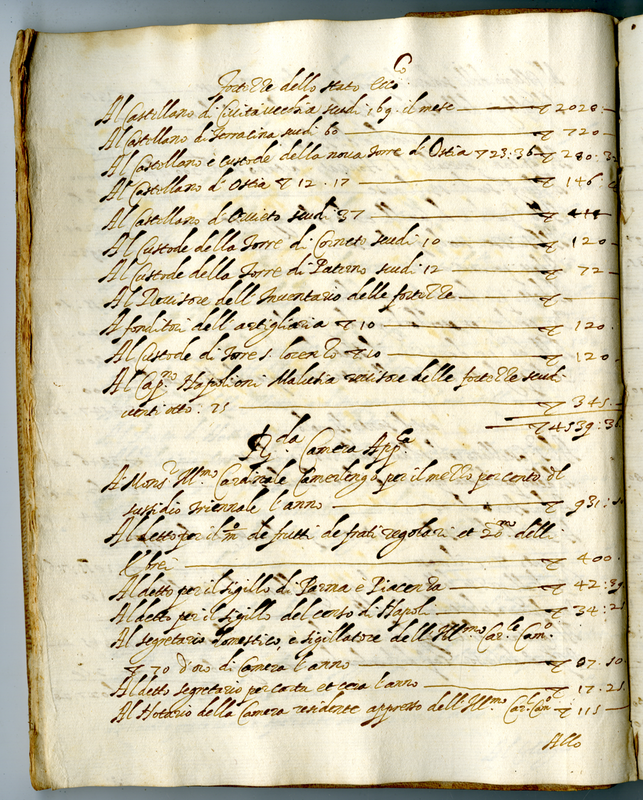 Fortezze dello stato Ecc.co
Al Castellano di Civitavecchia scudi 169 il mese ▽ 2028
Al Castellano di Terracina scudi 60 ▽ 720
Al Castellano e Custode della nova Torre di Ostia ▽ 23:36 ▽ 280:3
Al Castellano d'Ostia ▽ 12.17 ▽ 146
Al Castellano d'Orvieto scudi 37 ▽ 444
Al Custode della Torre di Corneto scudi 10 ▽ 120
Al Custode della Torre di Paterno scudi 12 ▽ 72
Al Revisore dell'Inventario delle fortezze ▽
A fonditori dell'artigliaria ▽ 10 ▽ 120
Al Custode di Torre s. lorenzo ▽ 10 ▽ 120
Al Cap.no Napolioni Malvetia revisore delle fortezze scudi
vent'otto. 75 ▽ 345
▽ 4539:3
R.da Camera App.ca
A Mons.r Ill.mo Cardinale Camerlengo per il mezzo per cento del
sussidio triennale l'anno ▽ 931:50
Al detto per il de frutti de frati regolari et delli
▽ 400
Al detto per il sigillo di Parma e Piacenza ▽ 42:89
Al detto per il sigillo del censo di Napol ▽ 34:25
Al segretario domestico, e sigillatore dell'Ill.mo Car.le Cam.o
▽ 70 d'oro di Camera l'anno ▽ 87.50
Al detto segretario per carta et cera l'anno ▽ 17.25
Al Notario della Camera residente appresso dell'Ill.mo Car.l Cam.o ▽ 115
Allo